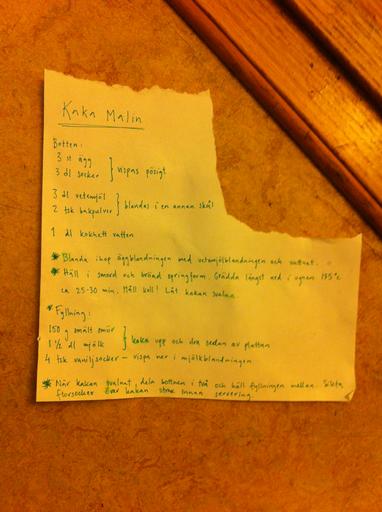 Kaka Malin
Botten:
3 st ägg
3 dl socker } vispas pösigt
3 dl vetemjöl
2 tsk bakpulver } blandas i en annan skål
1 dl kokhett vatten
* Blanda ihop äggblandningen med vetemjölblandningen och vattnet.
* Häll i smord och bröad springform. Grädda längst ned i ugnen 175°c
ca 25-30 min. Håll koll! Låt kakan svalna.
* Fyllning:
150 g smält smör
1 ½ dl mjölk } koka upp och dra sedan av plattan
4 tsk vaniljsocker - vispa ner i mjölkblandningen
* När kakan svalnat, dela bottnen i två och häll fyllningen mellan. Sikta
florsocker över kakan strax innan servering.